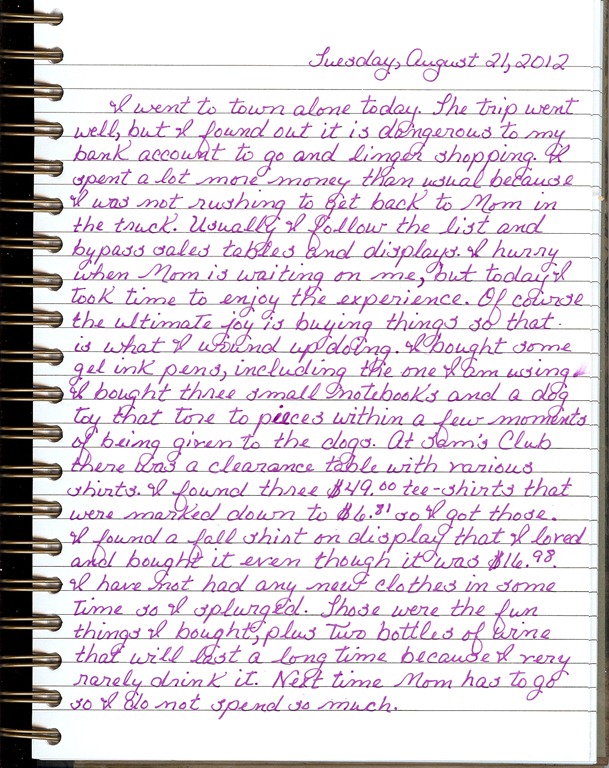 Tuesday, August 21, 2012
I went to town alone today. The trip went
well, but I found out it is dangerous to my
bank account to go and linger shopping. I
spent a lot more money than usual because
I was not rushing to get back to Mom in
the truck. Usually I follow the list and
bypass sales tables and displays. I hurry
when Mom is waiting on me, but today I
took time to enjoy the experience. Of course
the ultimate joy is buying things so that
is what I wound up doing. I bought some
gel ink pens, including the one I am using.
I bought three small notebooks and a dog
toy that tore to pieces within a few moments
of being given to the dogs. At Sam's Club
there was a clearance table with various
shirts. I found three $49.00 tee-shirts that
were marked down to $6.81 so I got those.
I found a fall shirt on display that I loved
and bought it even though it was $16.98.
I have not had any new clothes in some
time so I splurged. Those were the fun
things I bought, plus two bottles of wine
that will last a long time because I very
rarely drink it. Next time Mom has to go
so I do not spend so much.